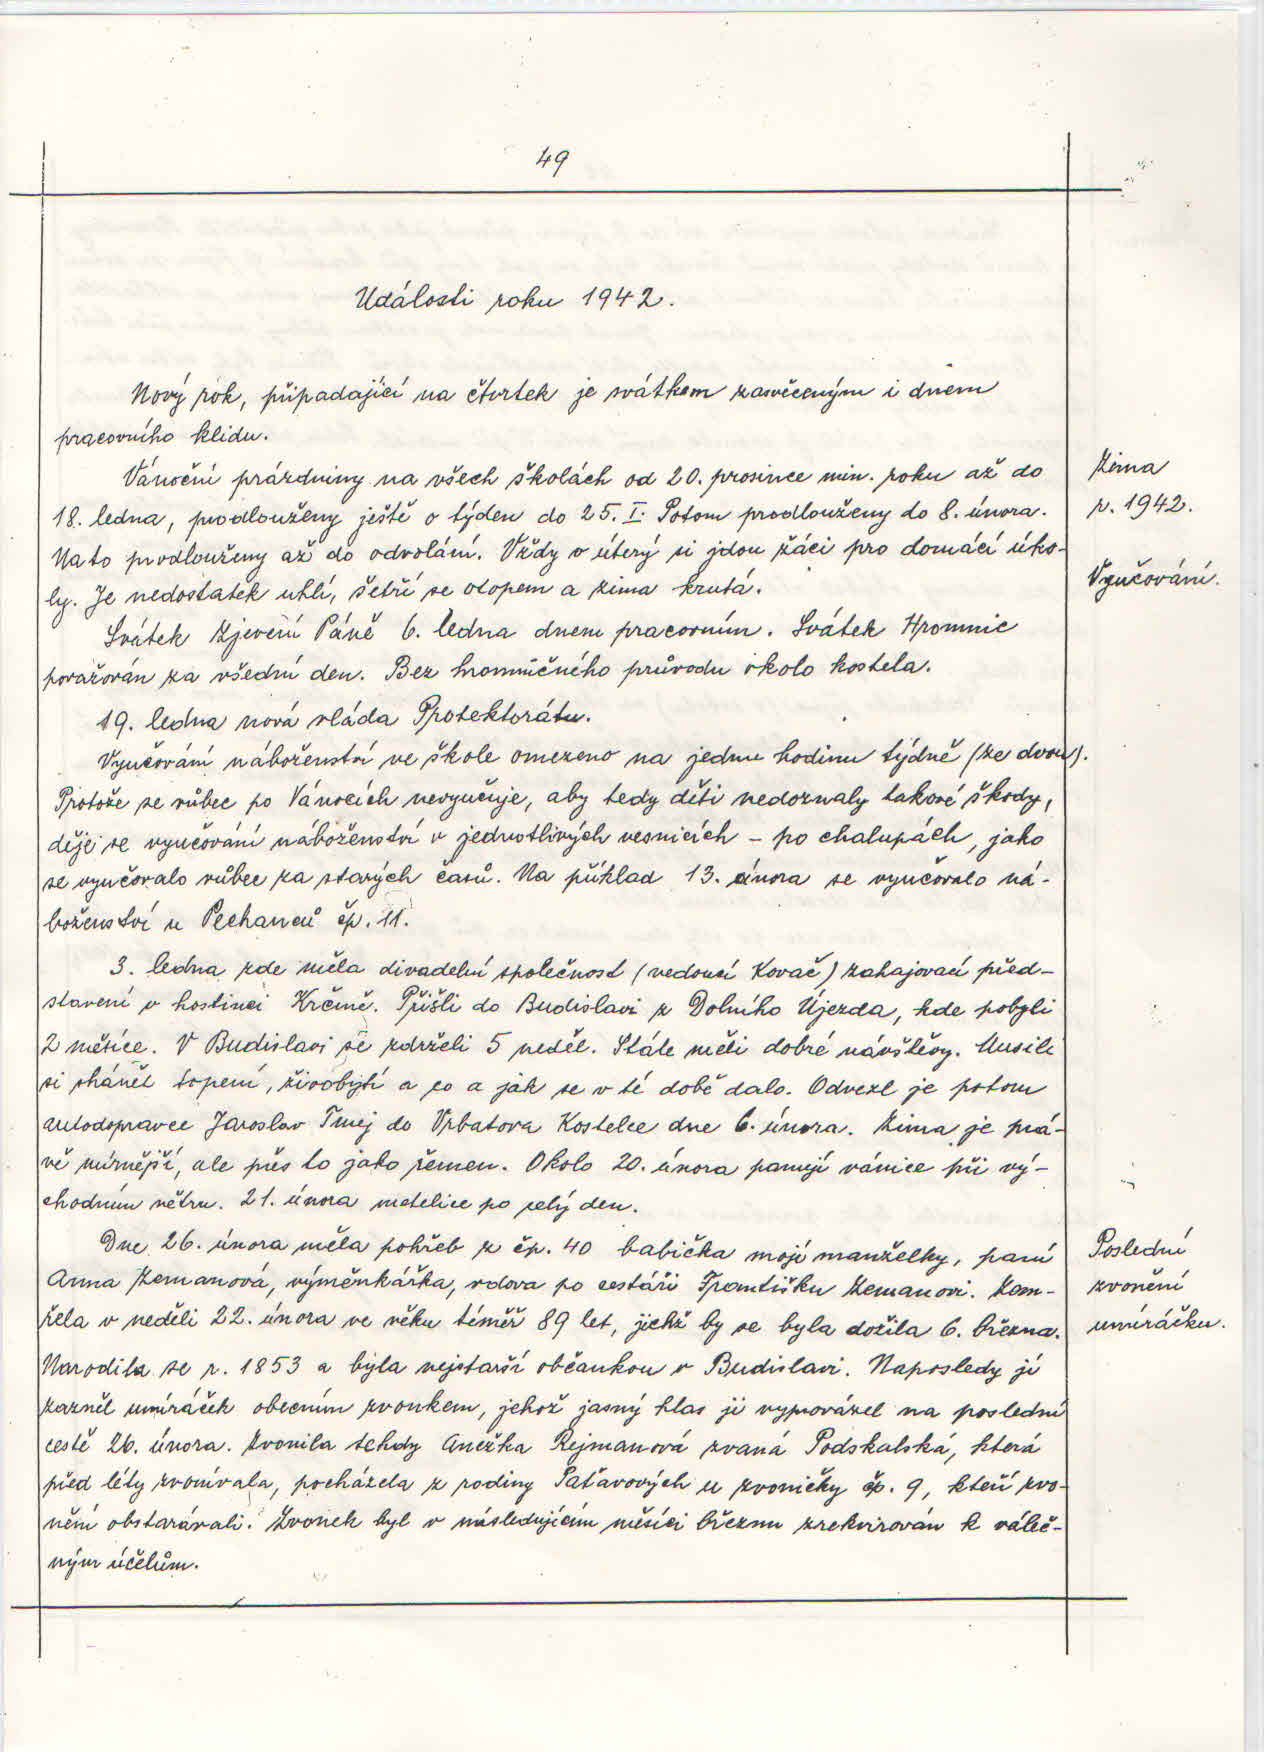 49
Události roku 1942.
Nový rok, připadající na čtvrtek je svátkem zasvěceným i dnem
pracovního klidu.
Vánoční prázdniny na všech školách od 20. prosince min. roku až do
18. ledna, prodlouženy ještě o týden do 25. I. Potom prodlouženy do 8. února.
Na to prodlouženy až do odvolání. Vždy v úterý si jdou žáci pro domácí úko-
ly. Je nedostatek uhlí, šetří se otopem a zima krutá.
Zima
r. 1942.
Vyučování.
Svátek Zjevení Páně 6. ledna dnem pracovním. Svátek Hromnic
považován za všední den. Bez hromničného průvodu okolo kostela.
19. ledna nová vláda Protektorátu.
Vyučování náboženství ve škole omezeno na jednu hodinu týdně (ze dvou).
Protože se vůbec po Vánocích nevyučuje, aby tedy děti nedoznaly takové škody,
děje se vyučování náboženství v jednotlivých vesnicích - po chalupách, jako
se vyučovalo vůbec za starých časů. Na příklad 13. února se vyučovalo ná-
boženství u Pechanců čp. 11.
3. ledna zde měla divadelní společnost (vedoucí Kovač) zahajovací před-
stavení v hostinci Krčmě. Přišli do Budislavi z Dolního Újezda, kde pobyli
2 měsíce. V Budislavi se zdrželi 5 neděl. Stále měli dobré návštěvy. Musili
si shánět topení, živobytí a co a jak se v té době dalo. Odvezl je potom
autodopravce Jaroslav Tmej do Vrbatova Kostelce dne 6. února. Zima je prá-
vě mírnější, ale přes to jako řemen. Okolo 20. února panují vánice při vý-
chodním větru. 21. února metelice po celý den.
Dne 26. února měla pohřeb z čp. 40 babička mojí manželky, paní
Anna Zemanová, výměnkářka, vdova po cestáři Františku Zemanovi. Zem-
řela v neděli 22. února ve věku téměř 89 let, jichž by se byla dožila 6. března.
Narodila se r. 1853 a byla nejstarší občankou v Budislavi. Naposledy jí
zazněl umíráček obecním zvonkem, jehož jasný hlas ji vyprovázel na poslední
cestě 26. února. Zvonila tehdy Anežka Rejmanová zvaná Podskalská, která
před léty zvonívala, pocházela z rodiny Paťavových u zvoničky čp. 9, kteří zvo-
nění obstarávali. Zvonek byl v následujícím měsíci březnu zrekvirován k váleč-
ným účelům.
Poslední
zvonění
umíráčku.